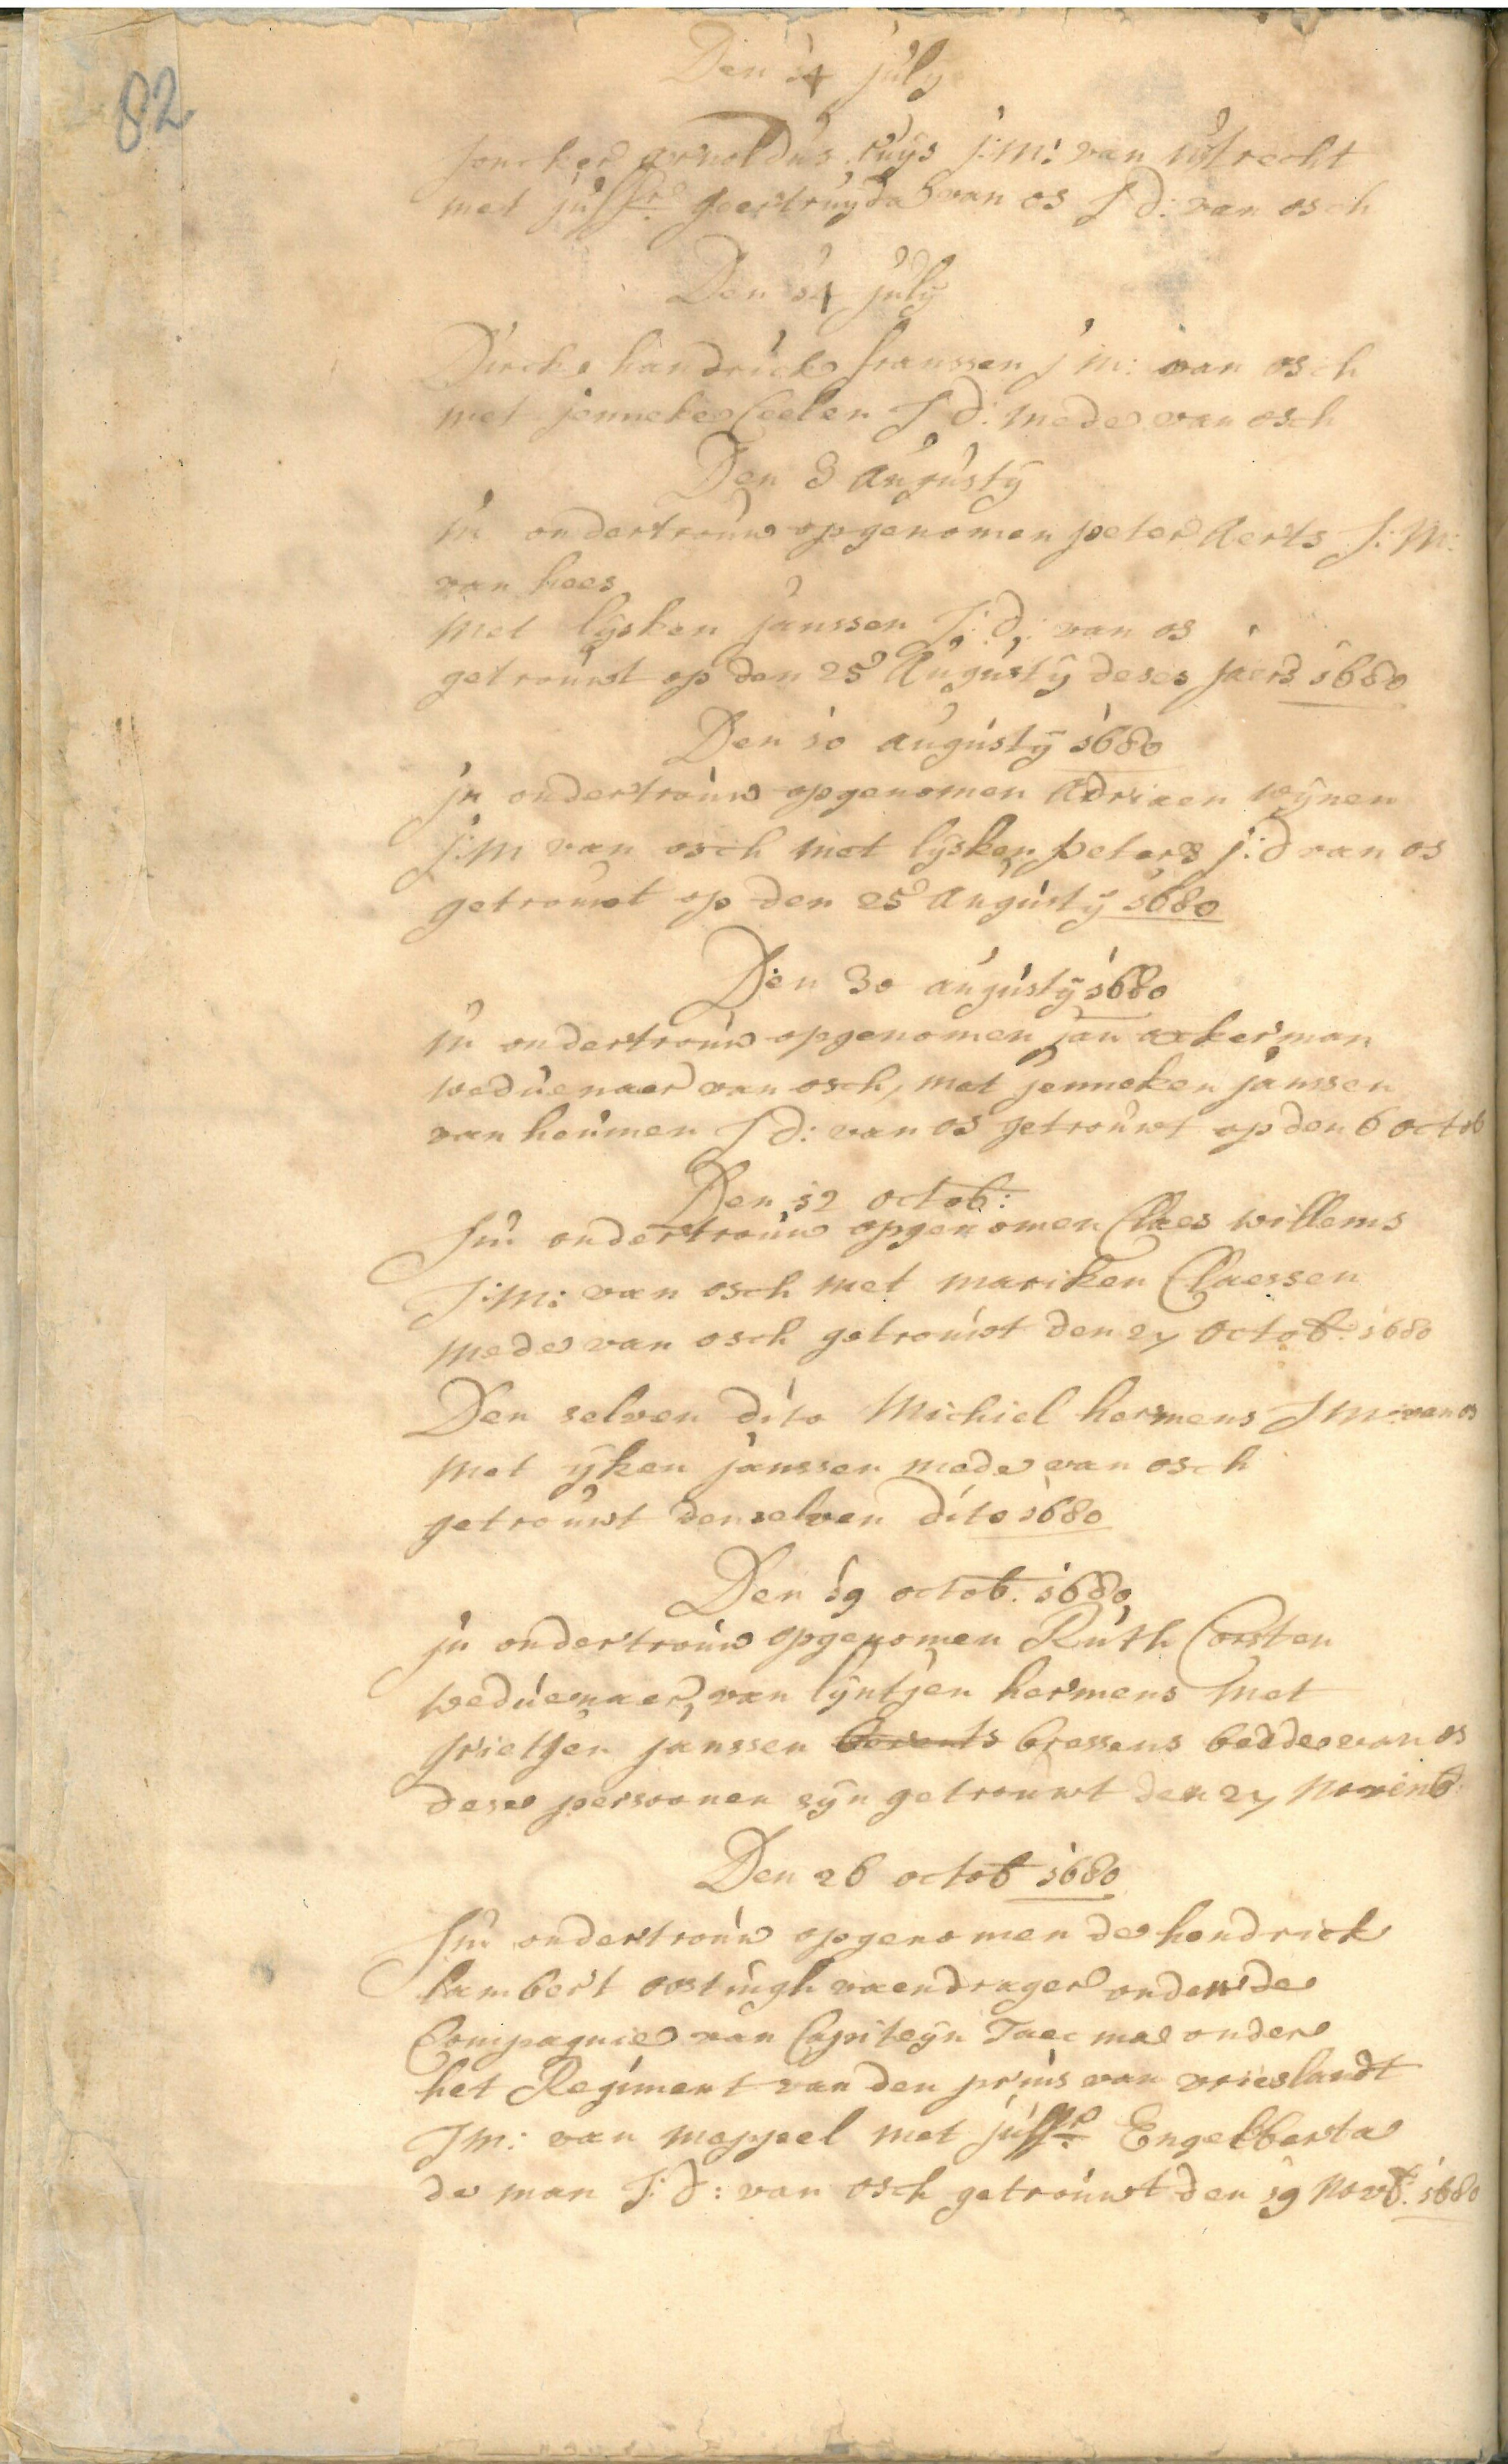 82
Den 14 july
Joncker Arnoldus Ruijs j:M: van utrecht
met juffr. geertruyda van os J d: van osch
Den 14 july
Dirck handrick franssen j m: van osch
met jenneke Ceelen J d: mede van osch
Den 3 augusty
in ondertrouw opgenomen peter Aerts J: M:
van hees
met lysken janssen J: d: van os
getrouwt op den 25 Augusty deses jaers 1680
Den 10 augusty 1680
jn ondertrouw opgenomen Adriaen wynen
j:m van osch met lysken peters j:d van os
getrouwt op den 25 augusty 1680
Den 30 augusty 1680
in ondertrouw opgenomen jan ackerman
weduenaer van osch, met jenneken janssen
van heumen J d: van os getrouwt op den 6 octob
Den 12 octob:
In ondertrouw opgenomen Claes willems
J:M: van osch met mariken Claessen
mede van osch getrouwt den 27 octob: 1680
Den selven dito Michiel hermens J M: van os
met yken janssen mede van osch
getrouwt denselven dito 1680
Den 19 octob. 1680
jn ondertrouw opgenomen Ruth Corsten
weduenaer, van lyntjen hermens met
grietjen janssen berents bressens beddes van os
dese persoonen syn getrouwt den 27 Novemb
Den 26 octob 1680
In ondertrouw opgenomen de hendrick
lambert oostingh vaendrager onder de
Compagnie van Capiteyn Taecma onder
het Regiment van den prins van vrieslandt
J m: van meppel met juffr. Engelberta
de man J: d: van osch getrouwt den 19 Novb. 1680